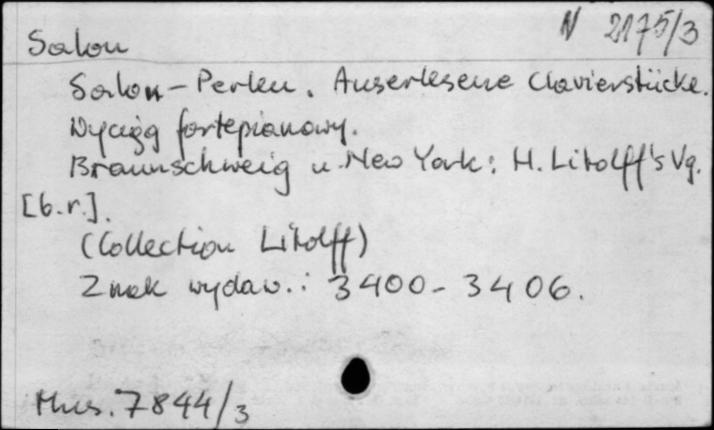 N 2175/3
Salon
Salon - Perlen. Auserlesene Clavierstücke.
Wyciąg fortepianowy.
Braunschweig u. New York: H. Litolff's Vg.
[b.r.].
(Collection Litolff)
Znak wydaw.: 3400-3406.
Mus. 7844/3